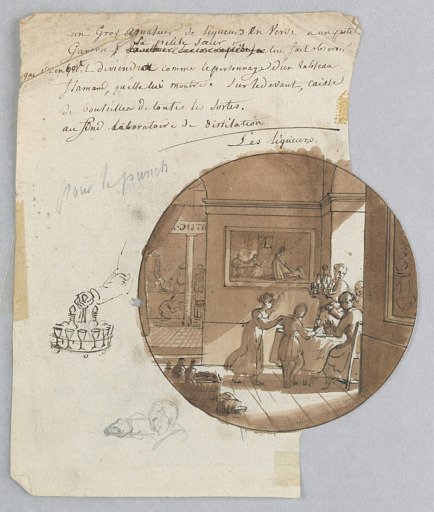 un Gros amateur de liqueurs en verse a un petit
Garçon & Sa petite sœur lui fait observer
comme le personnage d'un tableau
flamand, quelle lui montre. Sur le devant, caisse
de bouteilles de toutes les sortes.
au fond Laboratoire de distilation
Les liqueurs.
pour le punch
DISTI